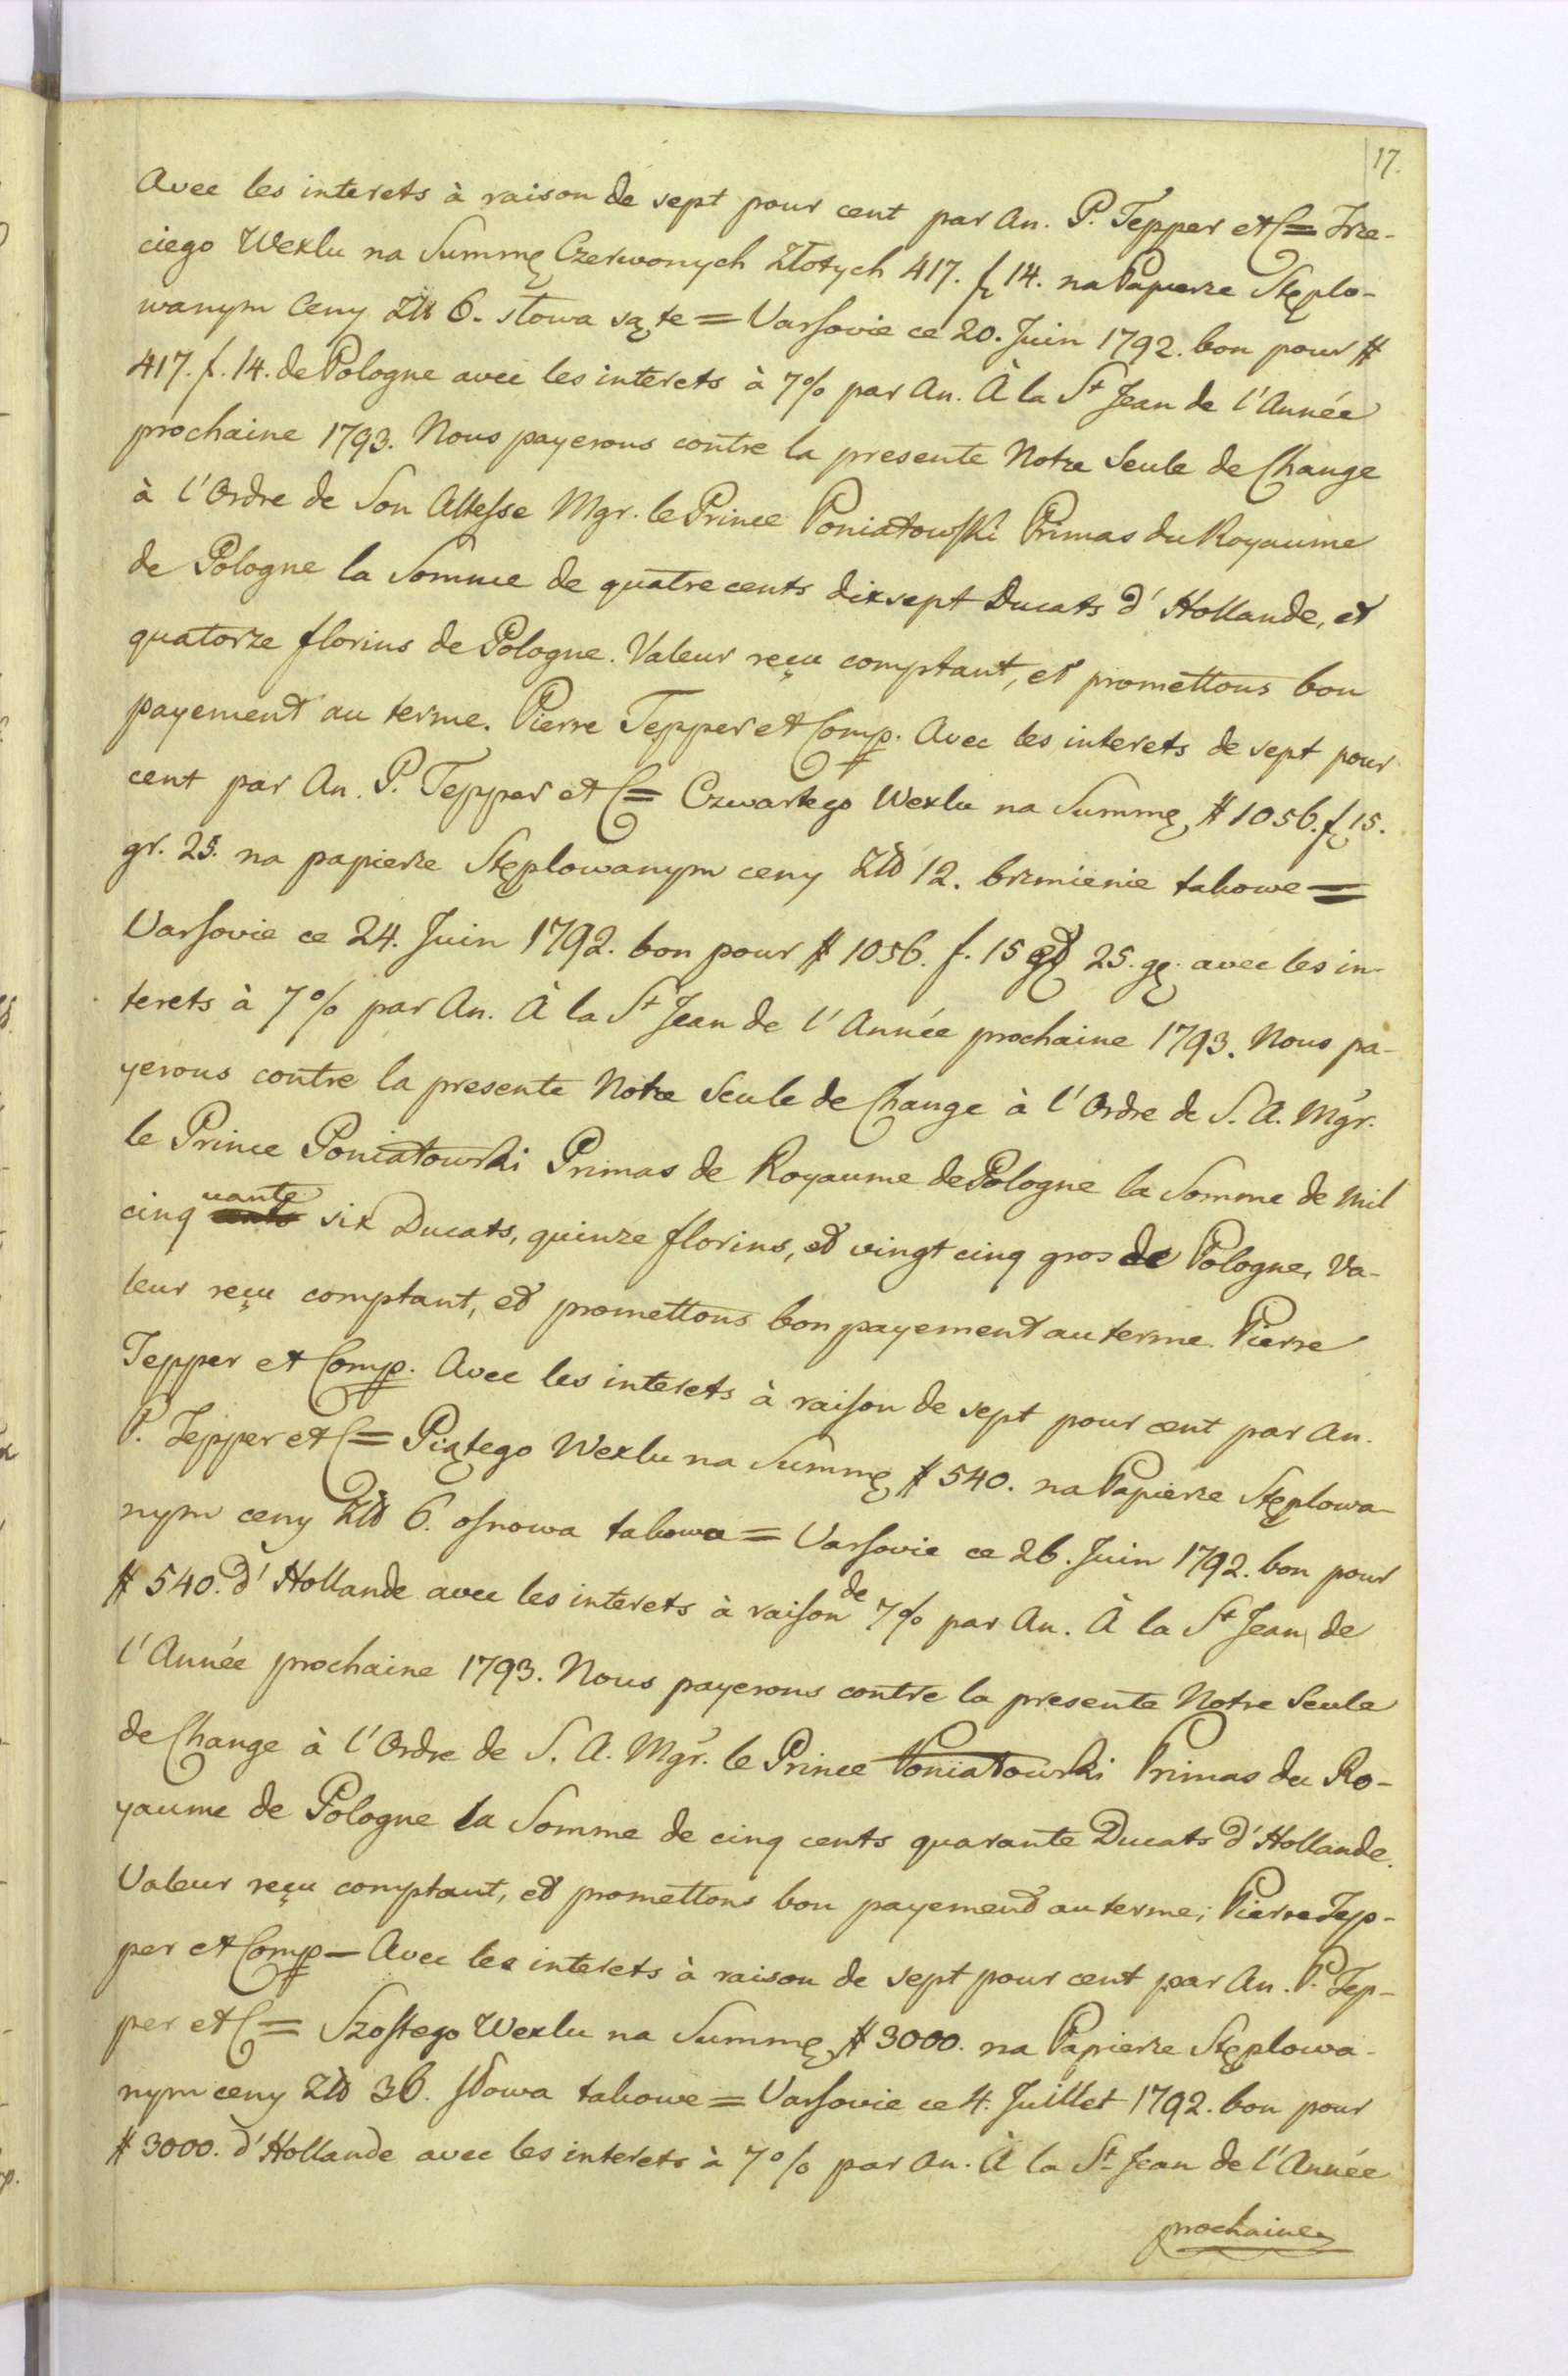 17.
Avec les interets à raison de sept pour cent par An. P. Tepper et C= Trze-
ciego Wexlu na Summę Czerwonych Złotych 417. f 14. na Papierze Stęplo-
wanym Ceny Złt 6. słowa są te = Varsovie ce 20. Juin 1792. bon pour #
417. f. 14. de Pologne avec les interets à 7% par An. À la St Jean de l'Année
prochaine 1793. Nous payerons contre la presente Notre Seule de Change
à l'Ordre de Son Altesse Mgr. le Prince Poniatowski Primas du Royaume
de Pologne la Somme de quatre cents dixsept Ducats d'Hollande, et
quatorze florins de Pologne. Valeur reçu comptant, et promettons bon
payement au terme. Pierre Tepper et Comp. Avec les interets de sept pour
cent par An. P. Tepper et C= Czwartego Wexlu na Summę # 1056. f 15.
gr. 25. na papierze Stęplowanym ceny Złt 12. brzmienie takowe =
Varsovie ce 24. Juin 1792. bon pour # 1056. f. 15 et 25. gr. avec les in-
terets à 7% par An. À la St Jean de l'Année prochaine 1793. Nous pa-
yerons contre la presente Notre Seule de Change à l'Ordre de S. A. Mgr.
le Prince Poniatowski Primas de Royaume de Pologne la Somme de mil
cinq uante six Ducats, quinze florins, et vingt cinq gros de Pologne, Va-
leur reçu comptant, et promettons bon payement au terme. Pierre
Tepper et Comp. Avec les interets à raison de sept pour cent par An.
P. Tepper et C= Piątego Wexlu na Summę # 540. na Papierze Stęplowa-
nym ceny Złt 6. osnowa takowa = Varsovie ce 26. Juin 1792. bon pour
# 540. d'Hollande avec les interets à raison de 7% par An. À la St Jean de
l'Année prochaine 1793. Nous payerons contre la presente Notre Seule
de Change à l'Ordre de S. A. Mgr. le Prince Poniatowski Primas du Ro-
yaume de Pologne la Somme de cinq cents quarante Ducats d'Hollande.
Valeur reçu comptant, et promettons bon payement au terme; Pierre Tep-
per et Comp – Avec les interets à raison de sept pour cent par An. P. Tep-
per et C= Szostego Wexlu na Summę # 3000. na Papierze Stęplowa-
nym ceny Złt 36. słowa takowe = Varsovie ce 4. Juillet 1792. bon pour
# 3000. d'Hollande avec les interets à 7% par An. À la St Jean de l'Année
prochaine